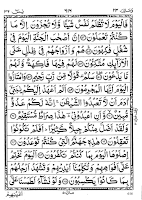 فَالْيَوْمَ لَا تُظْلَمُ نَفْسٌ شَيْئًا وَّلَا تُجْزَوْنَ اِلَّا مَا
كُنْتُمْ تَعْمَلُوْنَ ۝ اِنَّ اَصْحٰبَ الْجَنَّةِ الْيَوْمَ فِيْ
شُغُلٍ فٰكِهُوْنَ ۝ هُمْ وَاَزْوَاجُهُمْ فِيْ ظِلٰلٍ عَلَى
الْاَرَآئِكِ مُتَّكِـُٔوْنَ ۝ لَهُمْ فِيْهَا فَاكِهَةٌ وَّلَهُمْ
مَّا يَدَّعُوْنَ ۝ سَلٰمٌ قَوْلًا مِّنْ رَّبٍّ رَّحِيْمٍ ۝ وَامْتَازُوا
الْيَوْمَ اَيُّهَا الْمُجْرِمُوْنَ ۝ اَلَمْ اَعْهَدْ اِلَيْكُمْ يٰبَنِيْٓ
اٰدَمَ اَنْ لَّا تَعْبُدُوا الشَّيْطٰنَ اِنَّهٗ لَكُمْ عَدُوٌّ
مُّبِيْنٌ ۝ وَّاَنِ اعْبُدُوْنِيْ هٰذَا صِرَاطٌ مُّسْتَقِيْمٌ ۝
وَلَقَدْ اَضَلَّ مِنْكُمْ جِبِلًّا كَثِيْرًا اَفَلَمْ تَكُوْنُوْا
تَعْقِلُوْنَ ۝ هٰذِهٖ جَهَنَّمُ الَّتِيْ كُنْتُمْ تُوْعَدُوْنَ ۝
اِصْلَوْهَا الْيَوْمَ بِمَا كُنْتُمْ تَكْفُرُوْنَ ۝ اَلْيَوْمَ نَخْتِمُ
عَلٰٓى اَفْوَاهِهِمْ وَتُكَلِّمُنَآ اَيْدِيْهِمْ وَتَشْهَدُ اَرْجُلُهُمْ
بِمَا كَانُوْا يَكْسِبُوْنَ ۝ وَلَوْ نَشَآءُ لَطَمَسْنَا عَلٰٓى